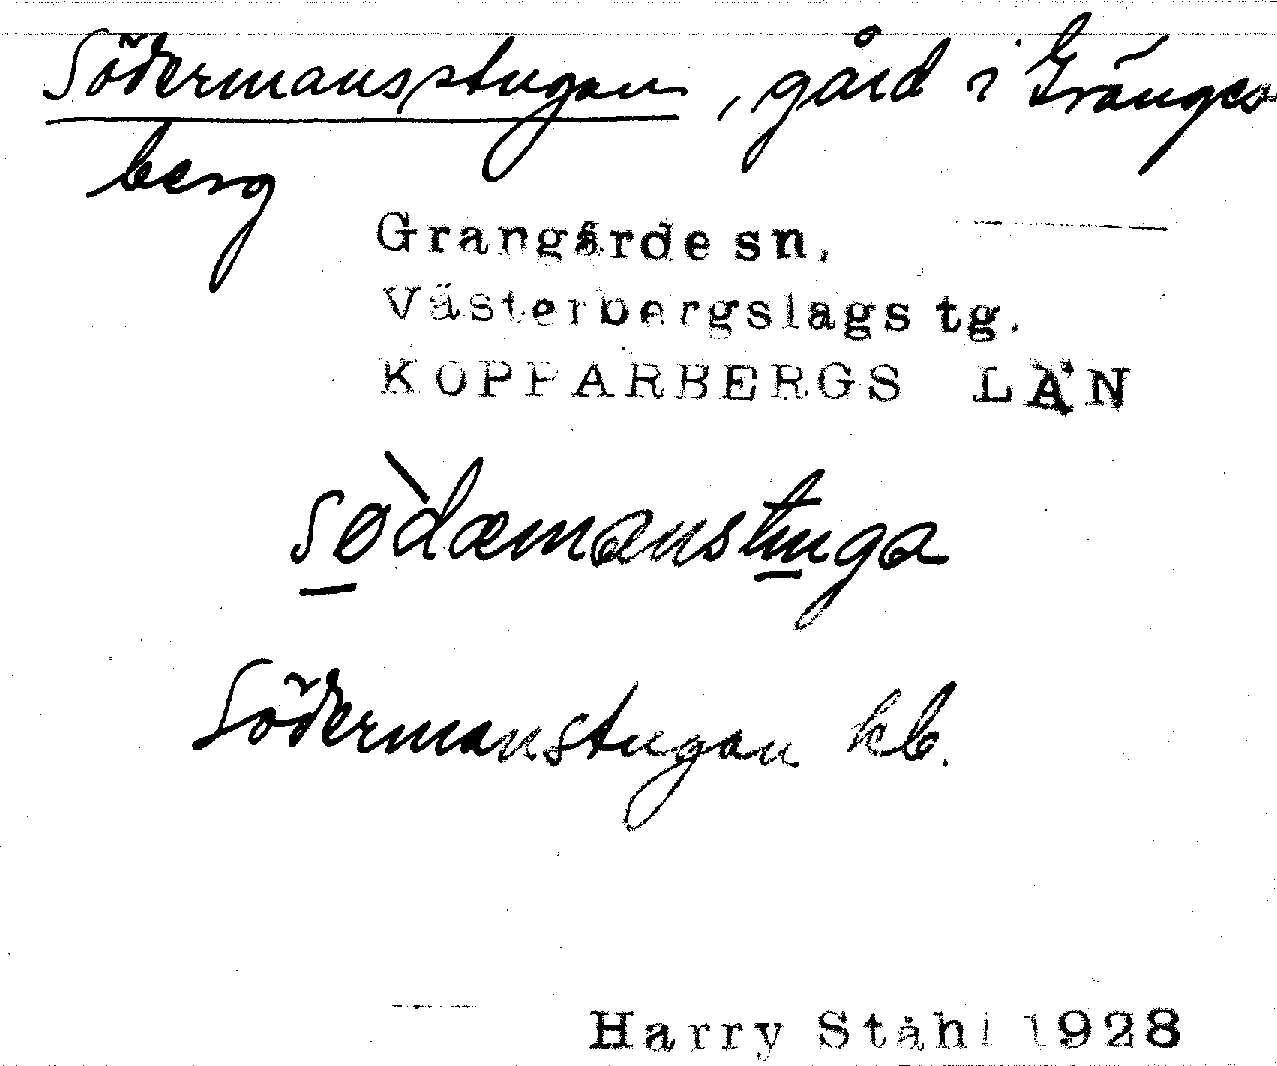 Södermansstugan, gård i Gränges-
berg
Grangärde sn.
Västerbergslags tg.
KOPPARBERGS LÄN
sø̀dæmanstuga
Södermanstugan kb.
Harry Ståhl 1928